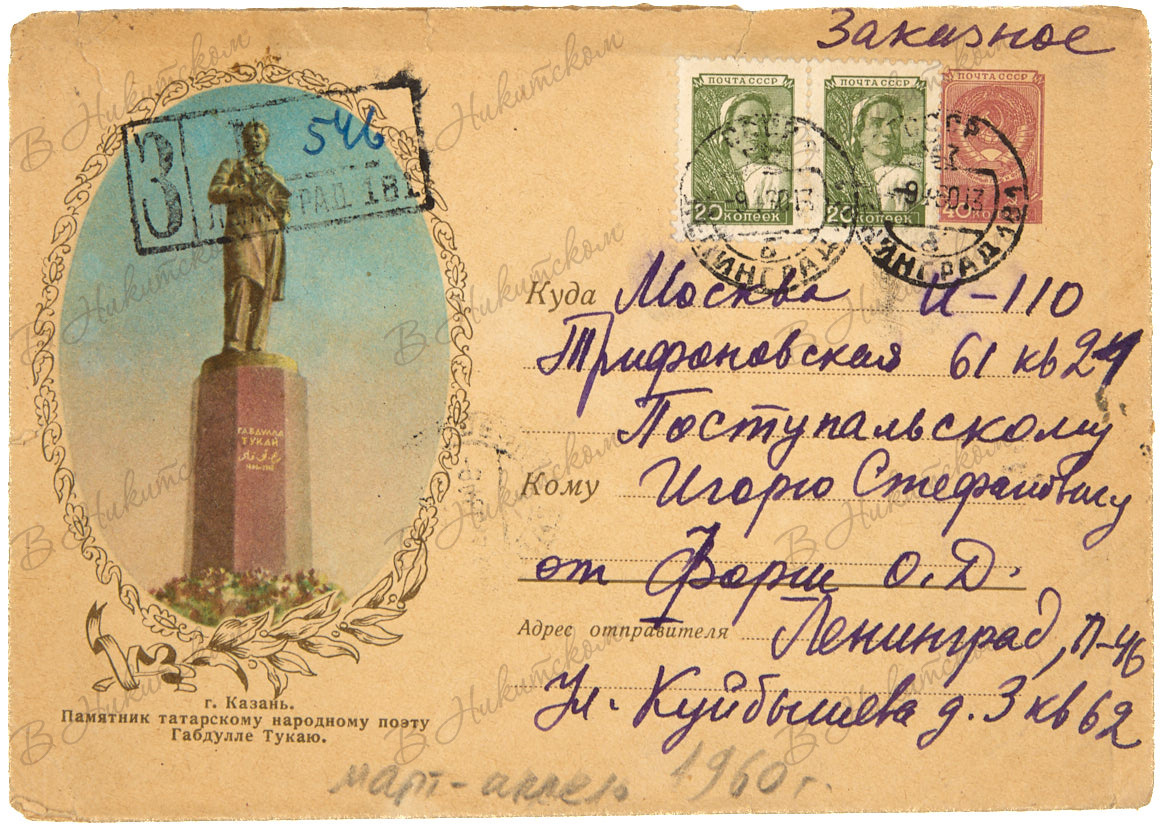 Заказное
ПОЧТА СССР ПОЧТА СССР ПОЧТА СССР
З 546
ЛЕНИНГРАД 181
20 КОПЕЕК 20 КОПЕЕК 40 КОПЕЕК
СССР СССР
ЛЕНИНГРАД ЛЕНИНГРАД
Куда Москва И-110
Трифоновская 61 кв 24
Поступальскому
ГАБДУЛЛА
ТУКАЙ
Кому Игорю Стефановичу
от Форш О.Д.
Адрес отправителя Ленинград, П-46
Ул. Куйбышева д. 3 кв 62
г. Казань.
Памятник татарскому народному поэту
Габдулле Тукаю.
март-апрель 1960 г.
В Никитском